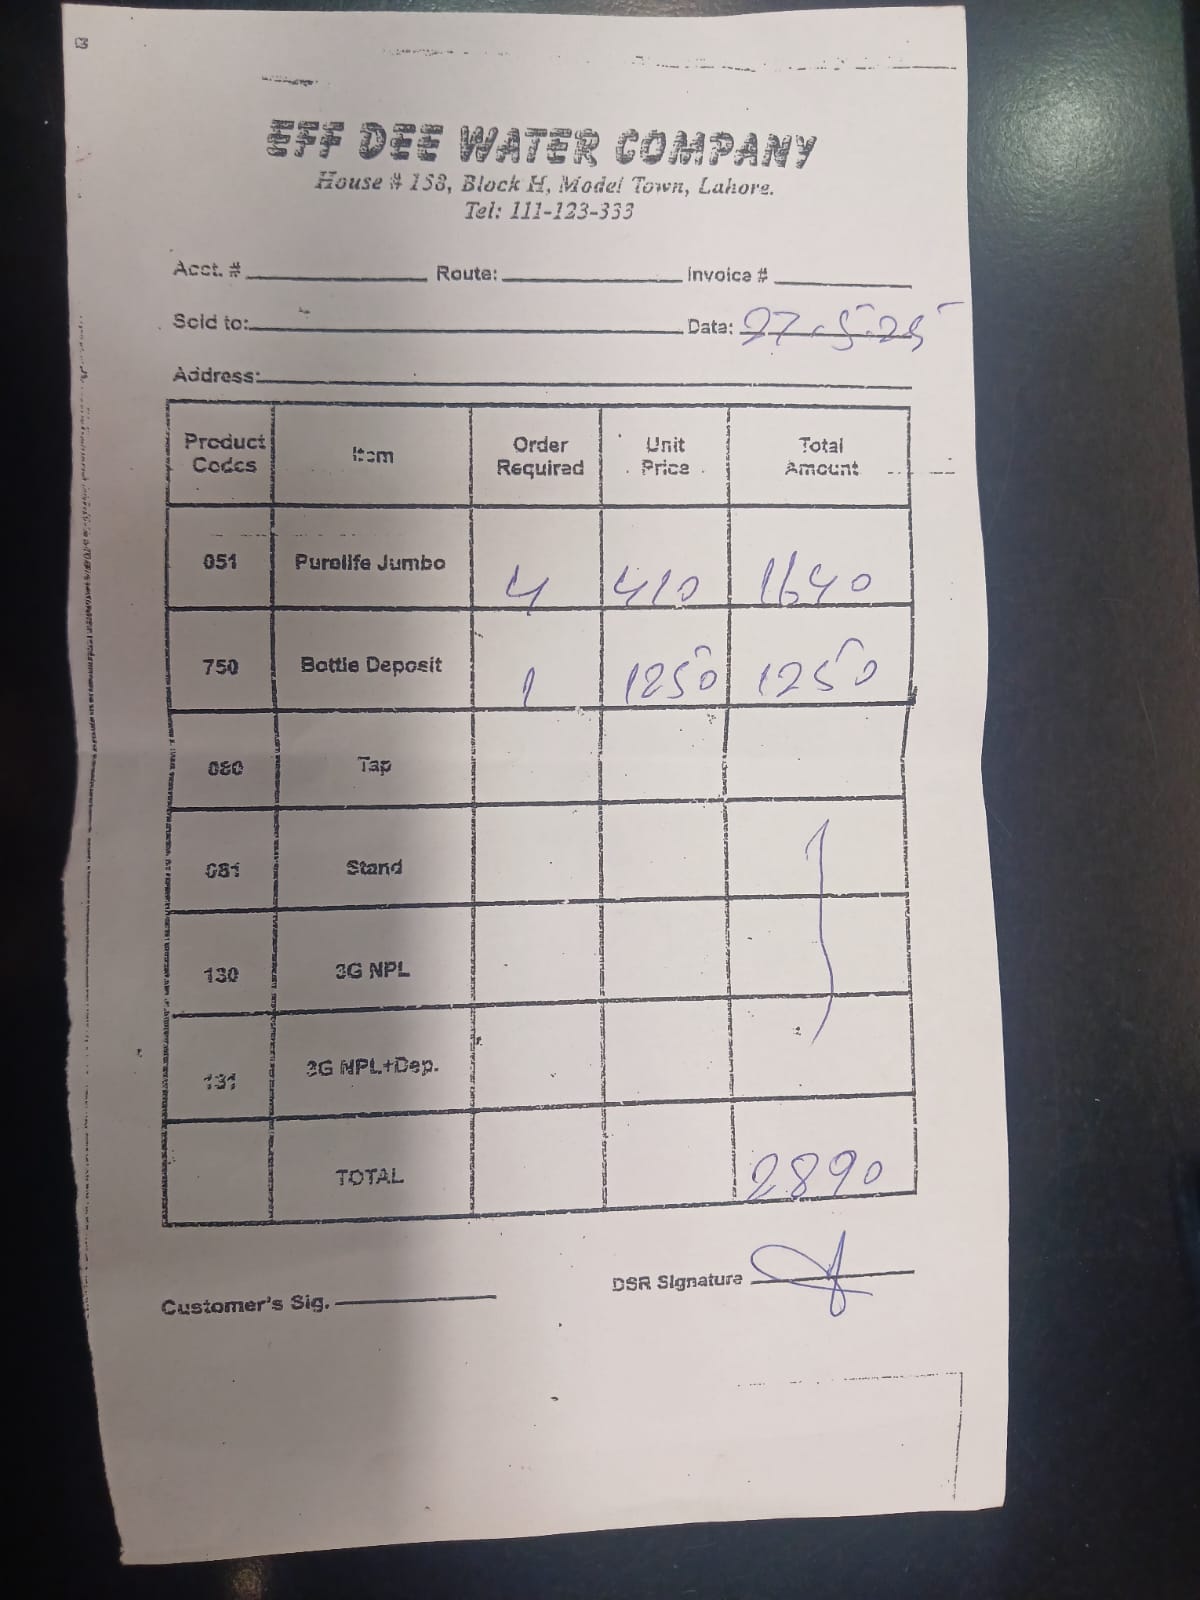 EFF DEE WATER COMPANY
House # 158, Block H, Model Town, Lahore.
Tel: 111-123-333
Acct. # Route: Invoice #
Sold to: Date: 27-5-25
Address:
Product Codes Item Order Required Unit Price Total Amount
051 Purelife Jumbo 4 410 1640
750 Bottle Deposit 1 1250 1250
080 Tap
081 Stand
130 3G NPL
131 3G NPL+Dep.
TOTAL 2890
Customer's Sig. DSR Signature